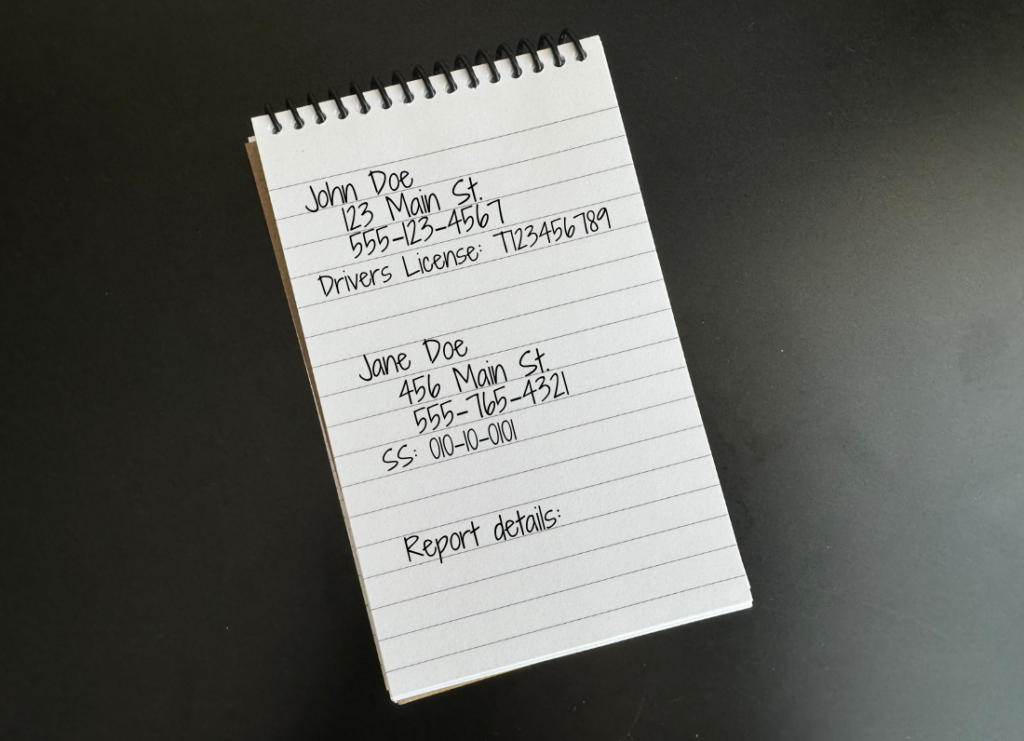 John Doe
123 Main St.
555-123-4567
Drivers License: T123456789
Jane Doe
456 Main St.
555-765-4321
SS: 010-10-0101
Report details: